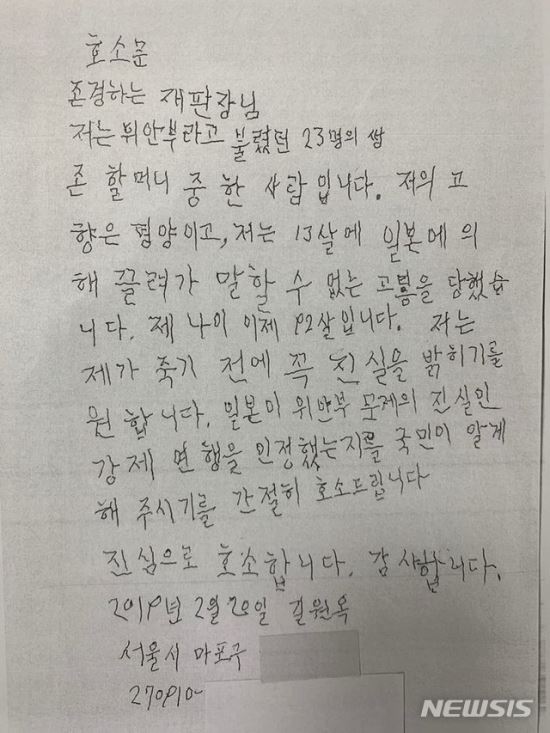 호소문
존경하는 재판장님
저는 위안부라고 불렸던 23명의 생
존 할머니 중 한 사람입니다. 저의 고
향은 평양이고, 저는 13살에 일본에 의
해 끌려가 말할 수 없는 고통을 당했습
니다. 제 나이 이제 92살입니다. 저는
제가 죽기 전에 꼭 진실을 밝히기를
원합니다. 일본이 위안부 문제의 진실인
강제 연행을 인정했는지를 국민이 알게
해 주시기를 간절히 호소드립니다
진심으로 호소합니다. 감사합니다.
2019년 2월 20일 길원옥
서울시 마포구
270910-
NEWSIS